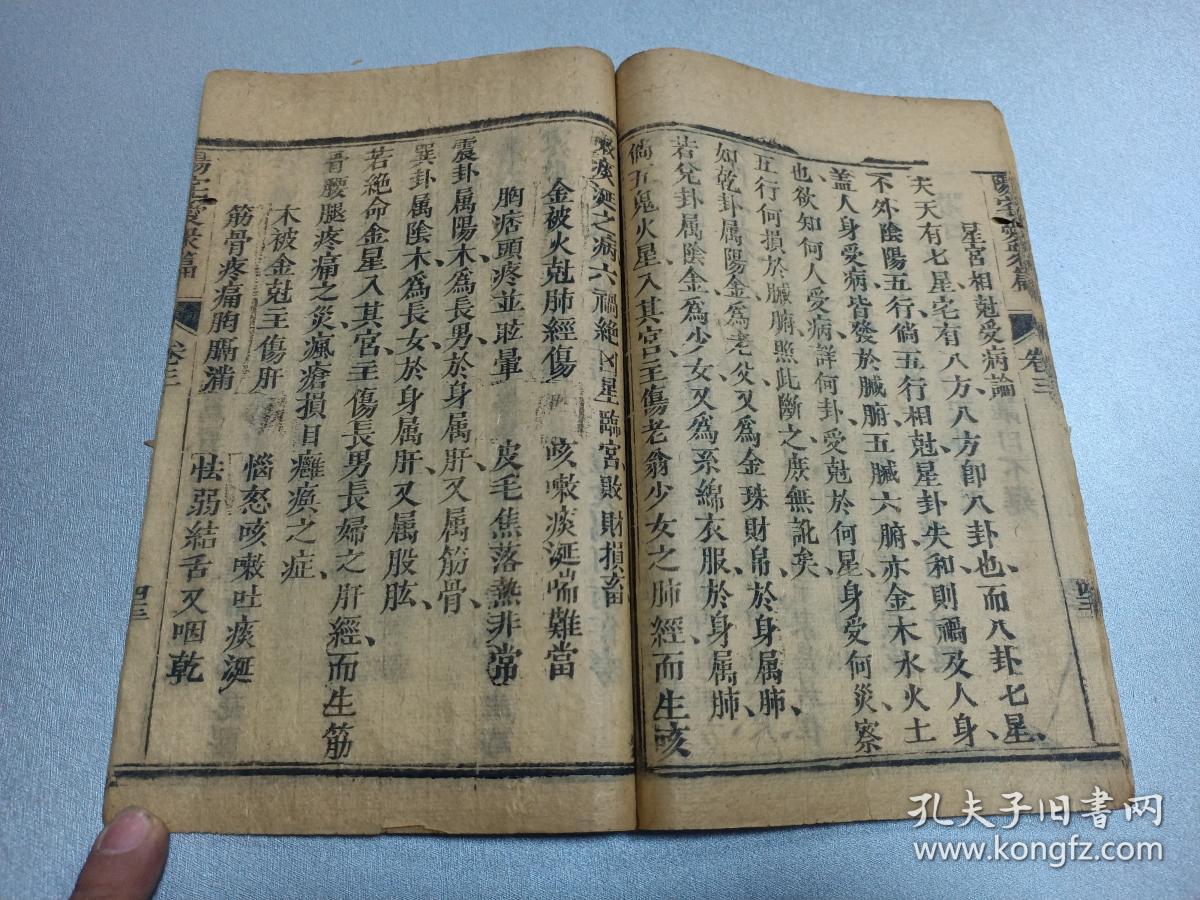 卷三
星宮相尅受病論
夫天有七星、宅有八方、八方卽八卦也、而八卦七星、
不外陰陽五行、倘五行相尅、星卦失和、則禍及人身、
盖人身受病、皆發於臟腑、五臟六腑、亦金木水火土
也、欲知何人受病、詳何卦、受尅於何星、身受何災、察
五行何損於臟腑、照此斷之、庻無訛矣、
如乾卦属陽金、爲老父、又爲金珠財帛、於身属肺、
若兌卦属陰金、爲少女、又爲系綿衣服、於身属肺、
倘五鬼火星入其宮、主傷老翁少女之肺經、而生咳
嗽痰涎之病、六禍絶凶星臨宮、敗財損畜
金被火尅肺經傷 咳嗽痰涎喘難當
胸痞頭疼並眩暈 皮毛焦落熱非常
震卦属陽木、爲長男、於身属肝、又属筋骨、
巽卦属陰木、爲長女、於身属肝、又属股肱、
若絶命金星入其宮、主傷長男長婦之肝經、而生筋
骨腰腿疼痛之災、瘋瘡損目癱瘓之症、
木被金尅主傷肝 惱怒咳嗽吐痰涎
筋骨疼痛胸膈滿 怯弱結舌又咽乾
卷三
四三
孔夫子旧书网
www.kongfz.com